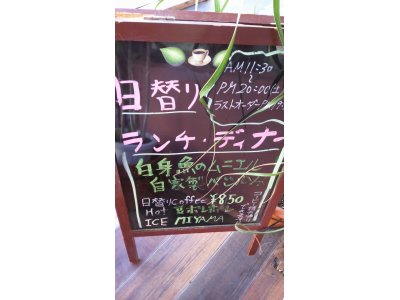 AM11:30
日替り
PM20:00(土
ラストオーダーPM19:
ランチ・ディナー
白身魚のムニエル
自家製パン
日替りCoffee ¥850
Hot
ICE MIYAMA